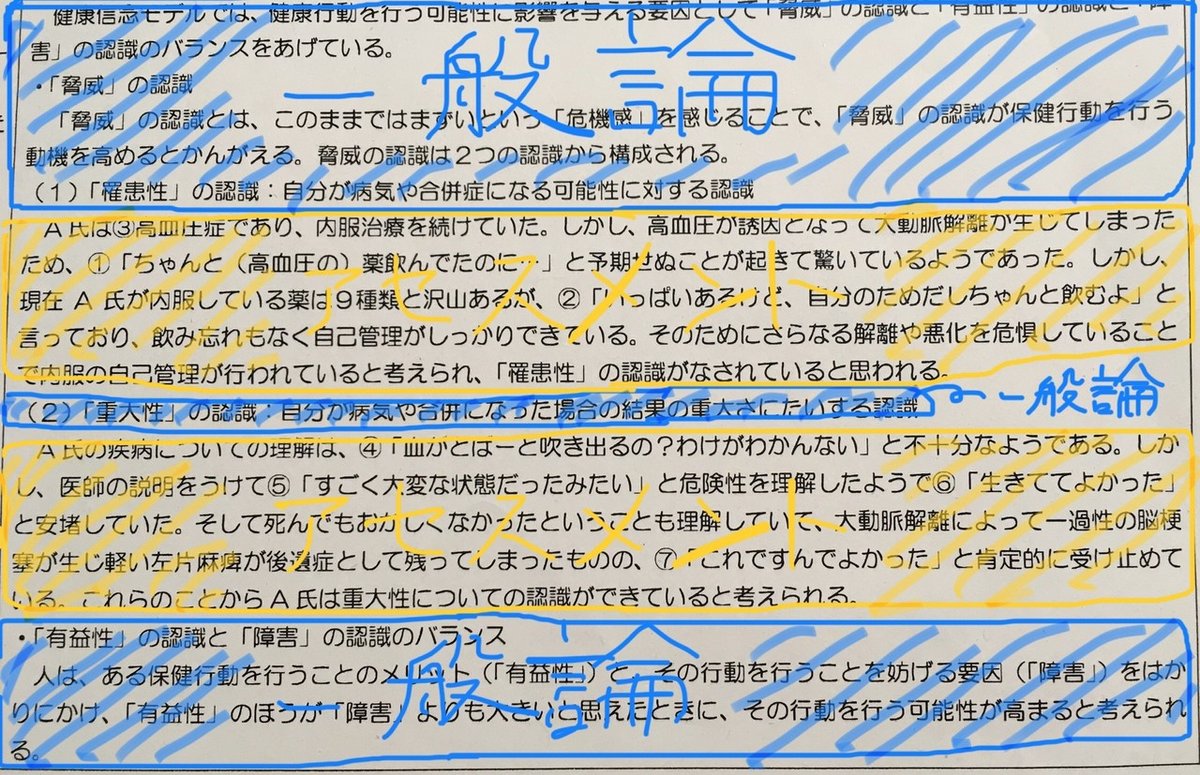 健康信念モデルでは、健康行動を行う可能性に影響を与える要因として「脅威」の認識と「有益性」の認識と「障
害」の認識のバランスをあげている。
・「脅威」の認識
「脅威」の認識とは、このままではまずいという「危機感」を感じることで、「脅威」の認識が保健行動を行う
動機を高めるとかんがえる。脅威の認識は2つの認識から構成される。
(1)「罹患性」の認識：自分が病気や合併症になる可能性に対する認識
一般論
A氏は③高血圧症であり、内服治療を続けていた。しかし、高血圧が誘因となって大動脈解離が生じてしまった
ため、①「ちゃんと（高血圧の）薬飲んでたのにー」と予期せぬことが起きて驚いているようであった。しかし、
現在 A 氏が内服している薬は9種類と沢山あるが、②「いっぱいあるけど、自分のためだしちゃんと飲むよ」と
言っており、飲み忘れもなく自己管理がしっかりできている。そのためにさらなる解離や悪化を危惧していること
で内服の自己管理が行われていると考えられ、「罹患性」の認識がなされていると思われる。
アセスメント
(2)「重大性」の認識：自分が病気や合併になった場合の結果の重大さにたいする認識
一般論
A氏の疾病についての理解は、④「血がとばーと吹き出るの？わけがわかんない」と不十分なようである。しか
し、医師の説明をうけて⑤「すごく大変な状態だったみたい」と危険性を理解したようで⑥「生きててよかった」
と安堵していた。そして死んでもおかしくなかったということも理解していて、大動脈解離によって一過性の脳梗
塞が生じ軽い左片麻痺が後遺症として残ってしまったものの、⑦「これですんでよかった」と肯定的に受け止めて
いる。これらのことからA氏は重大性についての認識ができていると考えられる。
アセスメント
・「有益性」の認識と「障害」の認識のバランス
人は、ある保健行動を行うことのメリット（「有益性」）と、その行動を行うことを妨げる要因（「障害」）をはか
りにかけ、「有益性」のほうが「障害」よりも大きいと思えたときに、その行動を行う可能性が高まると考えられ
る。
一般論